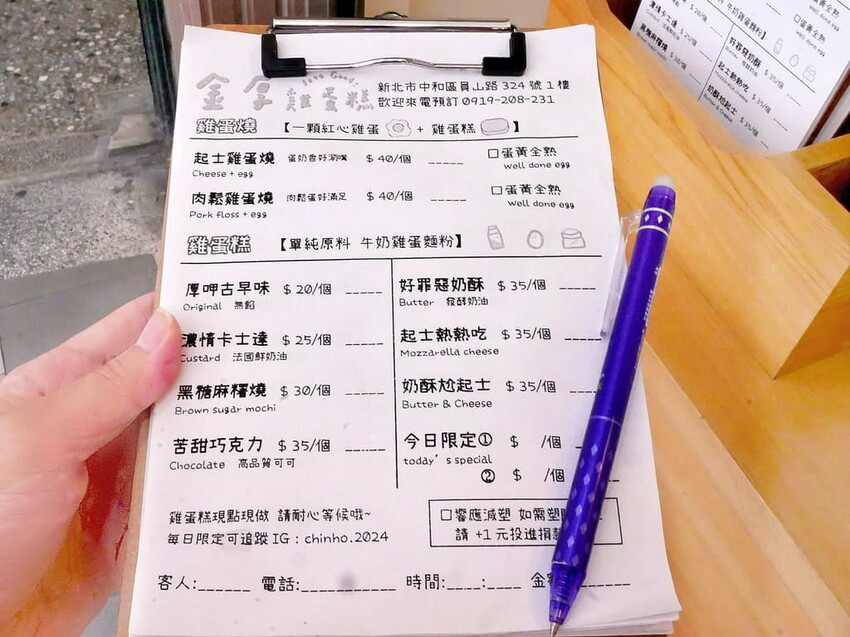 金享雞蛋糕 Good!
新北市中和區員山路 324 號 1 樓
歡迎來電預訂 0919-208-231
雞蛋燒 【一顆紅心雞蛋 + 雞蛋糕】
起士雞蛋燒 蛋奶香好涮嘴 $40/個 _____ □蛋黃全熟
Cheese + egg Well done egg
肉鬆雞蛋燒 肉鬆蛋好滿足 $40/個 _____ □蛋黃全熟
Pork floss + egg Well done egg
雞蛋糕 【單純原料 牛奶雞蛋麵粉】
厚呷古早味 $20/個 _____
Original 無餡
濃情卡士達 $25/個 _____
Custard 法國鮮奶油
黑糖麻糬燒 $30/個 _____
Brown sugar mochi
苦甜巧克力 $35/個 _____
Chocolate 高品質可可
好罪惡奶酥 $35/個 _____
Butter 發酵奶油
起士熱熱吃 $35/個 _____
Mozzarella cheese
奶酥尬起士 $35/個 ____
Butter & Cheese
今日限定① $ /個 __
today's special
② $ /個 __
雞蛋糕現點現做 請耐心等候哦~
每日限定可追蹤 IG：chinho.2024
□響應減塑 如需塑
請 +1 元投進捐
客人:______ 電話:__________ 時間:____:____ 金
濃情卡士達 $25/個
黑糖麻糬燒 $30/個
好罪惡奶酥 $35/個
Butter
起士熱熱吃 $35/個
Mozzarella cheese
奶酥尬起士
Butter & Cheese
牛奶雞蛋麵粉】
□蛋黃全熟
Well done egg